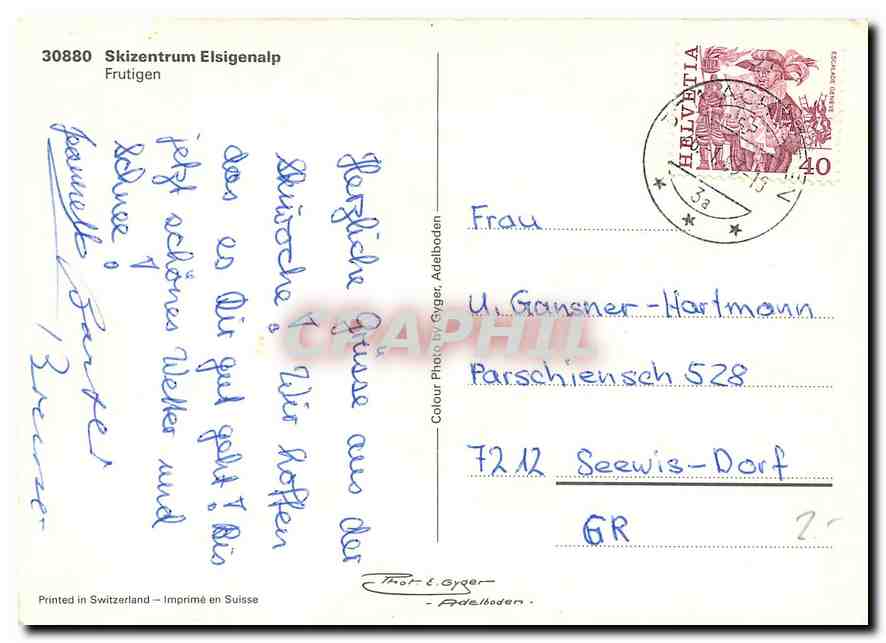 30880 Skizentrum Elsigenalp
Frutigen
Herzliche Grüsse aus der
Skiwoche! Wir hoffen
das es Dir gut geht! Bis
jetzt schönes Wetter und
Schnee!
Colour Photo by Gyger, Adelboden
HELVETIA
ESCALADE GENÈVE
40
3a
Frau
U. Gansner-Hartmann
Parschiensch 528
7212 Seewis-Dorf
GR
2.-
CPAPHIL
Phot. E. Gyger
- Adelboden -
Printed in Switzerland – Imprimé en Suisse